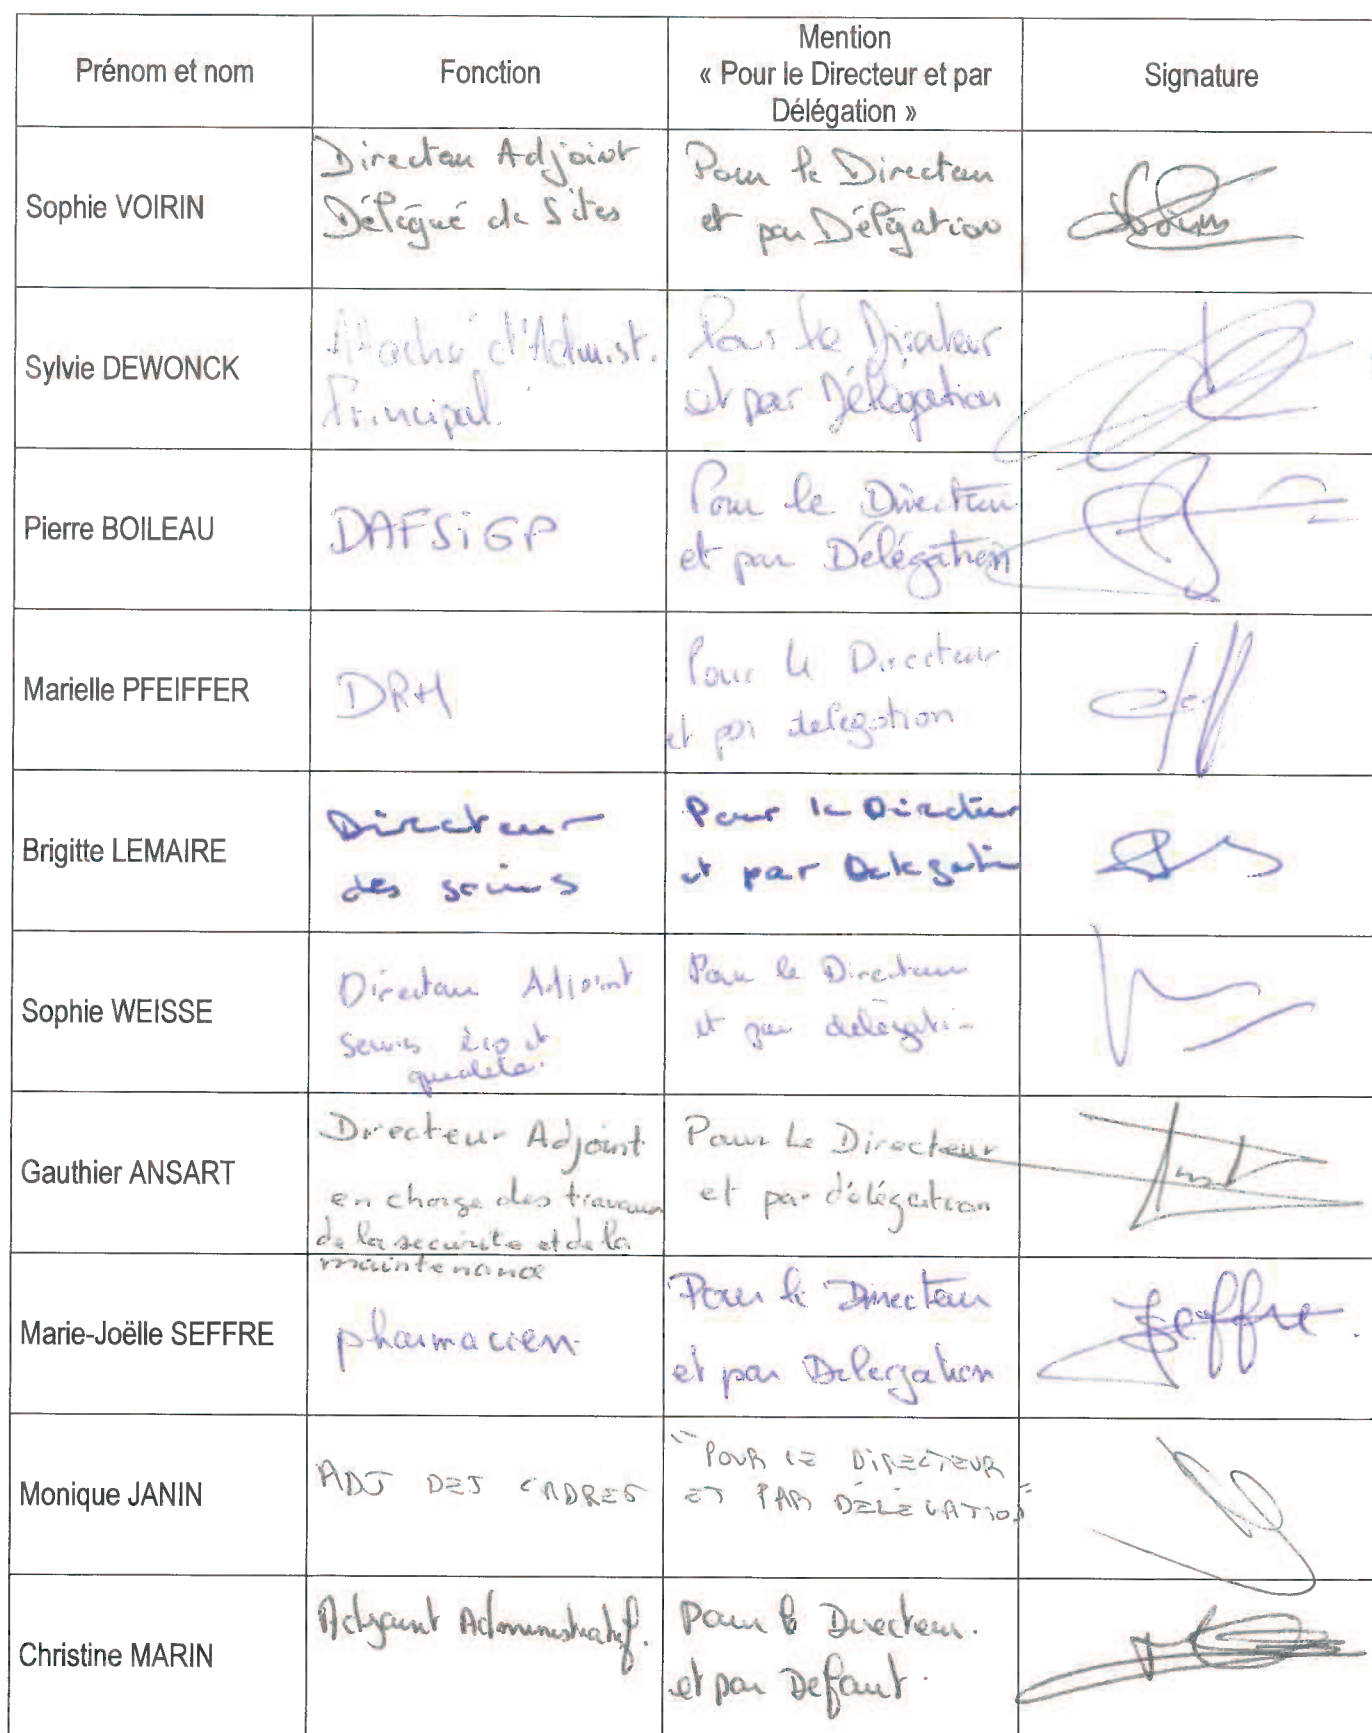 Prénom et nom
Fonction
Mention
« Pour le Directeur et par
Délégation »
Signature
Sophie VOIRIN
Directeur Adjoint
Délégué de Sites
Pour le Directeur
et par Délégation
Sylvie DEWONCK
Attaché d'Admist.
Principal.
Pour le Directeur
et par Délégation
Pierre BOILEAU
DAFSiGP
Pour le Directeur
et par Délégation
Marielle PFEIFFER
DRH
Pour le Directeur
et par delegation
Brigitte LEMAIRE
Directeur
des soins
Pour le Directeur
et par Delegation
Sophie WEISSE
Directeur Adjoint
éco et
qualité.
Pour le Directeur
et par délégation
Gauthier ANSART
Directeur Adjoint
en charge des travaux
de la sécurité et de la
maintenance
Pour Le Directeur
et par délégation
Marie-Joëlle SEFFRE
pharmacien
Pour le Directeur
et par Delegation
Seffre.
Monique JANIN
ADJ DES CADRES
"POUR LE DIRECTEUR
ET PAR DÉLÉGATION"
Christine MARIN
Adjoint Administratif.
Pour le Directeur.
et par Defaut.